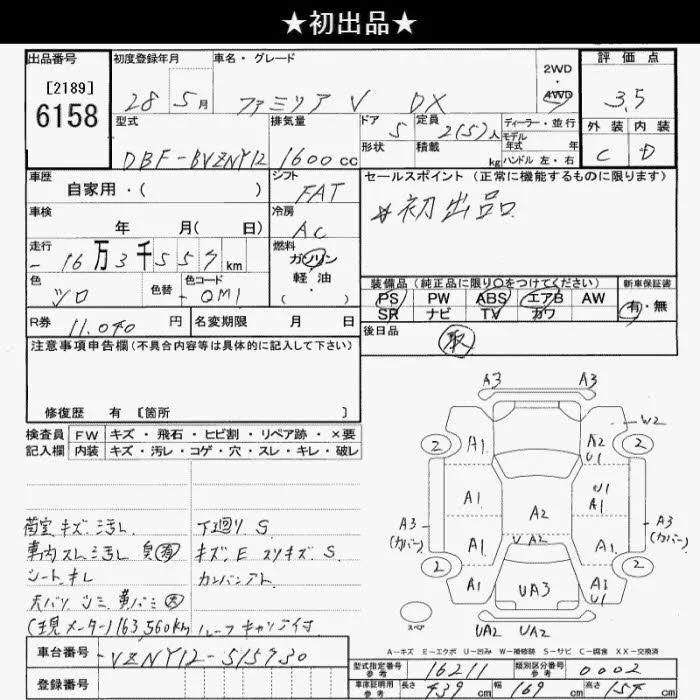 ★初出品★
出品番号
[2189]
6158
初度登録年月
28 5月
車名・グレード
ファミリア V DX
2WD
4WD
評価点
3.5
外装 内装
C D
型式
DBF-BVZNY12
排気量
1600cc
ドア
5
形状
定員
2(5)人
積載
kg
ディーラー・並行
モデル
年式 年
ハンドル 左・右
車歴
自家用・( )
シフト
FAT
車検
年 月( 日)
冷房
AC
走行
16万3千557km
燃料
ガソリン
軽油
( ・ )
色
シロ
色替
色コード
QM1
R券
11.040円
名変期限 月 日
セールスポイント (正常に機能するものに限ります)
初出品
装備品 (純正品に限り○をつけてください)
PS PW ABS エアB AW
SR ナビ TV カワ
新車保証書
有・無
後日品
取
注意事項申告欄 (不具合内容等は具体的に記入して下さい)
修復歴 有 [箇所 ]
検査員
記入欄
FW キズ・飛石・ヒビ割・リペア跡・×要
内装 キズ・汚レ・コゲ・穴・スレ・キレ・破レ
荷室キズ.汚レ 下廻り S
車内スレ.汚レ キズ.E スリキズ.S
シートキレ カンバンアト
天バリ シミ
(現メーター)163,560km ルーフキャリア付
A3 A3
W2
2 2
A1 A2
U1
A1 U
A1
A2
A3
(カバー)
A3
(カバー)
U A2
A1 A1
2 2
A1 UA3 A3
U1
スペア
UA2 UA2
A-キズ E-エクボ U-凹み W-補修跡 S-サビ C-腐食 XX-交換済
車台番号
-VZNY12-515730
登録番号
型式指定番号
参考
16211
類別区分番号
参考
0002
車庫証明用
参考
長さ 439cm 幅 169cm 高さ 154cm